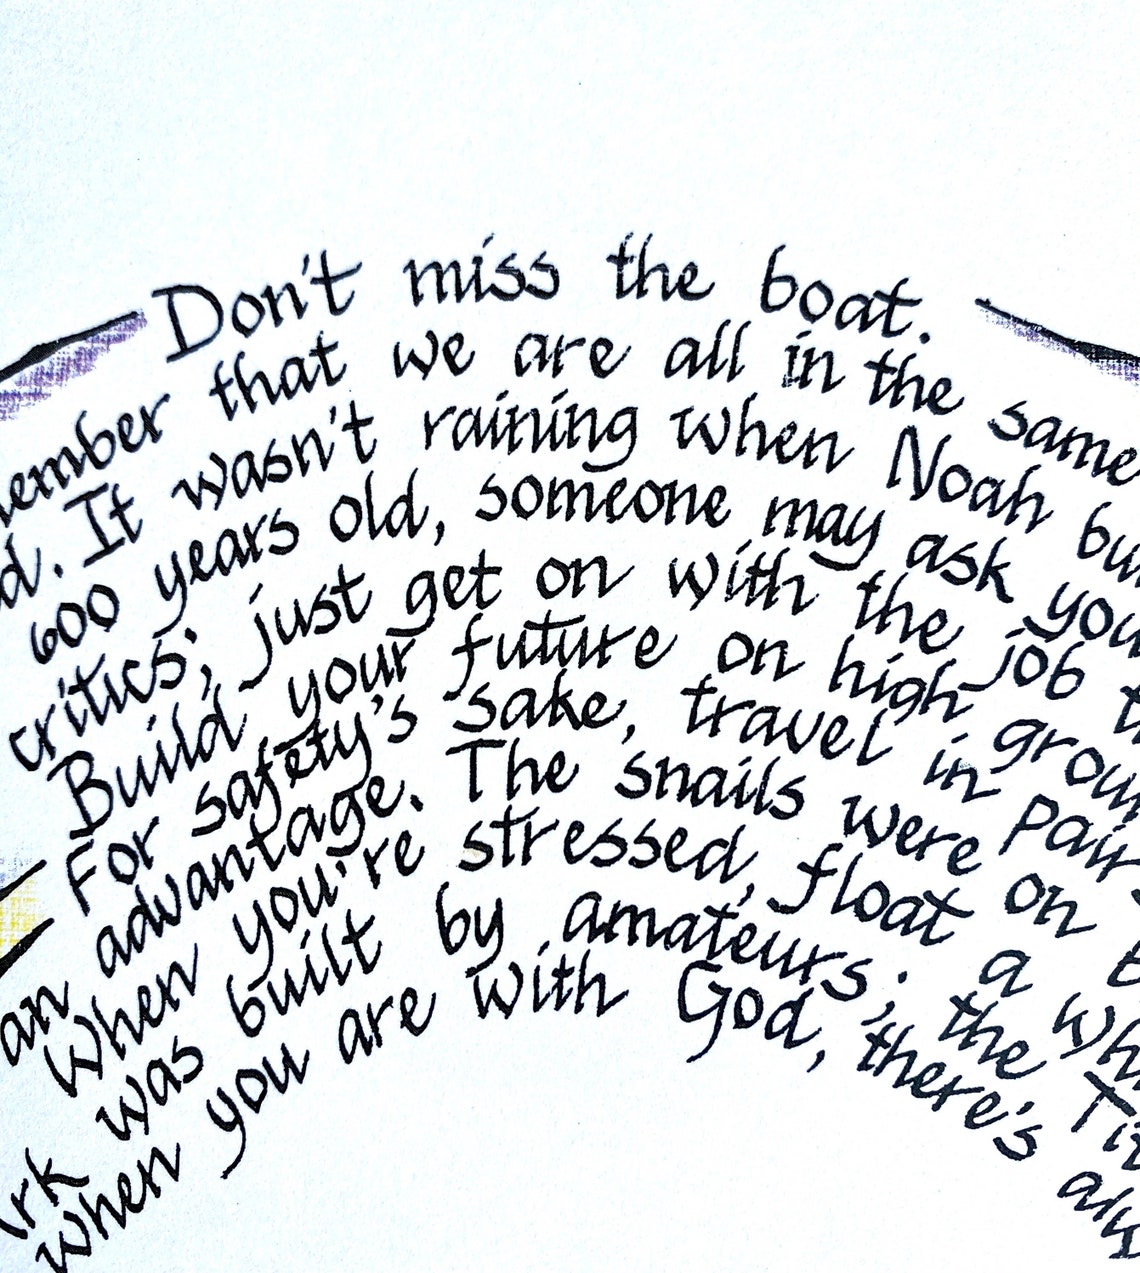 Don't miss the boat.
member that we are all in the same
d. It wasn't raining when Noah bui
600 years old, someone may ask you
critics; just get on with the job t
Build your future on high groun
For safety's sake, travel in pairs
an advantage. The snails were on
When you're stressed, float a whi
rk was built by amateurs; the Tit
when you are with God, there's alw